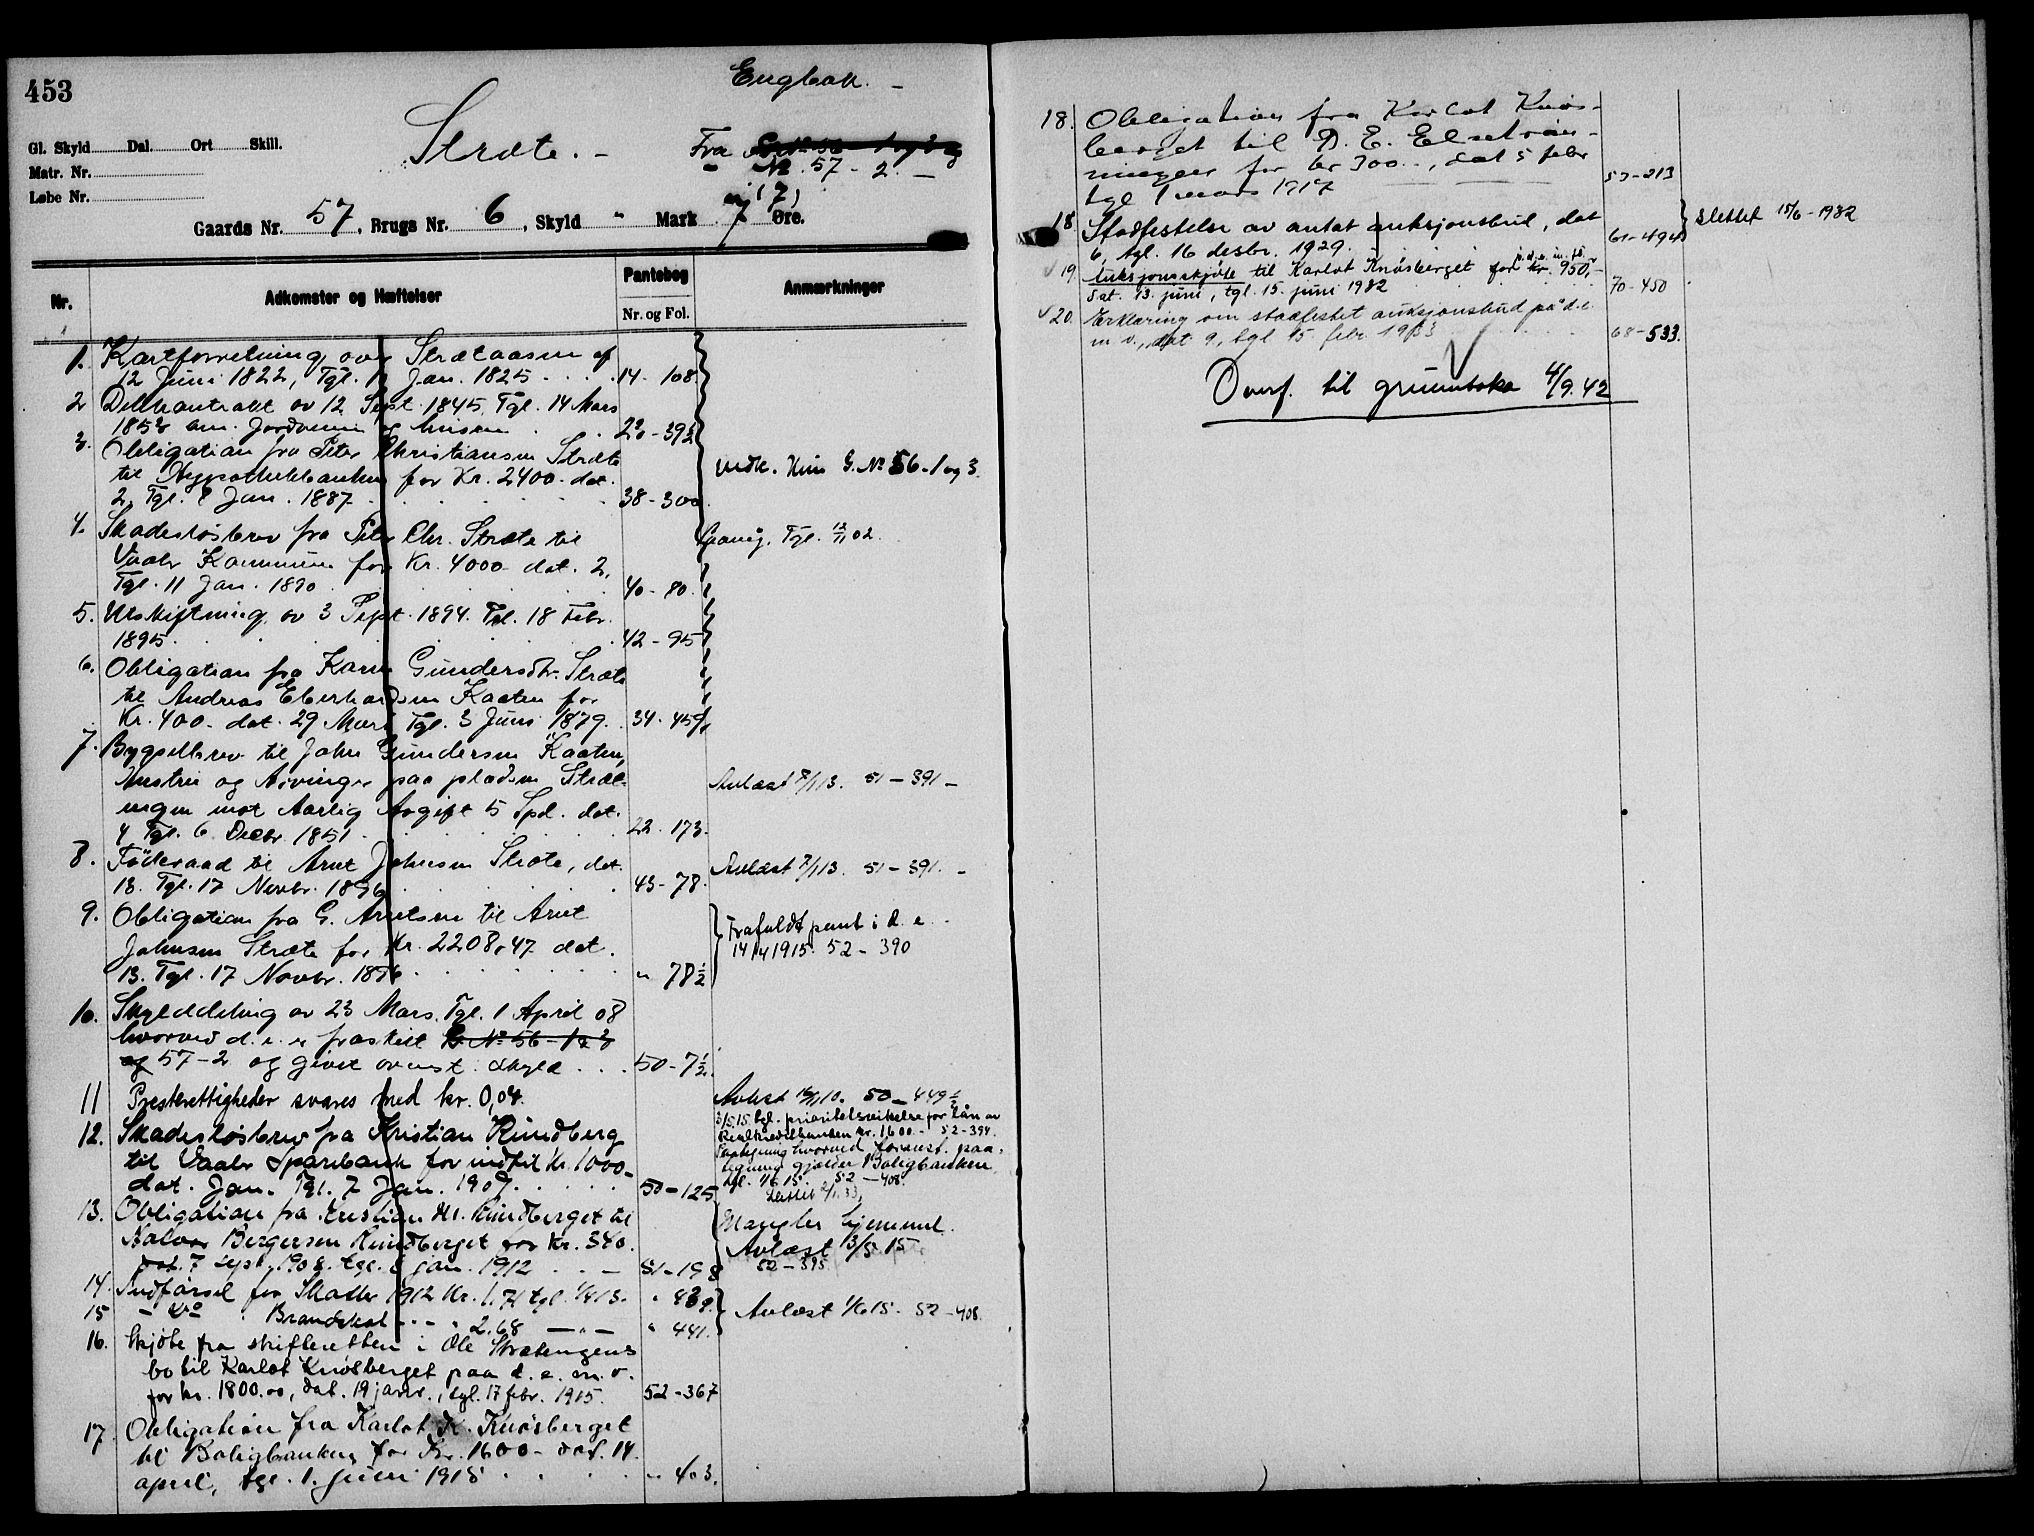 453
Engbak. -
Stræte. -
Fra
" No 57 - 2. -
Gl. Skyld Dal. Ort Skill.
Matr. Nr.
Løbe Nr.
(7)
Gaards Nr. 57, Brugs Nr. 6, Skyld " Mark 7 Øre.
Nr. Adkomster og Hæftelser Pantebog Anmærkninger
Nr. og Fol.
1. Kartforretning over Strætaasen af
12 Juni 1822, Tgl. Jan. 1825 14 - 108
2 Delkontrakt av 12 Sept. 1845, Tgl. 14 Mars
1853 om Jordveien og husene
3. Obligation fra Peter Christiansen Stræte
til Hypothekbanken for Kr. 2400 - dat.
2, Tgl. 8 Jan. 1887 38 - 300
vedk. kun G. No 56 - 1 og 3.
4. Skadesløsbrev fra Peter Chr. Stræte til
Vaaler Kommune for Kr. 4000 dat. 2,
Tgl. 11 Jan. 1890 40 - 80.
Tgl. 12/11 02.
5. Utskiftning av 3 Sept. 1894. Tgl. 18 Febr.
1895. 42 - 95
6. Obligation fra Karen Gundersdtr. Stræte
til Andreas Eberhardsen Kaaten for
Kr. 400 - dat. 29 Mars Tgl. 3 Juni 1879. 34 - 459
7. Bygselbrev til John Gundersen Kaaten,
Hustru og Arvinger paa pladsen Stræt-
engen mot Aarlig Avgift 5 Spd. dat.
4 Tgl. 6 Decbr. 1851 22 - 173.
Avlæst 7/1 13. 51 - 391 -
8. Föderaad til Arnt Johnsen Stræte, dat.
13. Tgl. 17 Novbr. 1896 43 - 78.
Avlæst 7/1 13. 51 - 391. -
9. Obligation fra G. Arntsen til Arnt
Johnsen Stræte for Kr. 2208,47 dat.
13. Tgl. 17 Novbr. 1896 " 78 1/2
Frafaldt pant i d. e.
14/4 1915. 52 - 390
10. Skylddeling av 23 Mars, Tgl. 1 April 08
hvorved d. e. er fraskilt G No 56 - 1 og 3
og 57 - 2 og givet ovenst. skyld . . . 50 - 7 1/2
11 Presterettigheder svares med kr. 0,04.
Avlæst 50 - 449 1/2
12. Skadesløsbrev fra Kristian Rundberg
til Vaaler Sparebank for indtil Kr. 1000 -
dat. Jan. Tgl. 7 Jan. 1909. 50 - 125
3/5 15 tgl. prioritetsvikelse for Lån av
Realkreditbanken kr. 1600 - 52 - 394.
Paategning hvorved foranst. paa-
tegning gjælder Boligbanken
tgl. 1/6 15. 52 - 408.
13. Obligation fra Kristian Rundberget til
Bergersen Rundberget for Kr. 340.
dat. 7 sept. 1908. tgl. jan. 1912 . . - 51 - 198
Mangler hjemmel.
Avlæst 3/5 15
52 - 395
14. Indførsel for Skatter 1912 Kr. 1.71 tgl. 1/4 13. " 439.
15 - do Brandskat - - " 2.68 - " - " 441.
Avlæst 1/6 15. 52 - 408.
16. Skjöte fra skifteretten i Ole Strætengens
bo til Karlot Knøsberget paa d. e. m. v.
for kr. 1800.00, dat. 19 janr., tgl. 17 febr. 1915. 52 - 367
17. Obligation fra Karlot K. Knøsberget
til Boligbanken for Kr. 1600 - dat. 14
april, tgl. 1. juni 1915 " 403.
18. Obligation fra Karlot Knøs-
berget til D. E.
for kr 300 -, dat 5 febr
tgl 1 mars 1917 53 - 213
18 Stadfestelse av antat auksjonsbud, dat
6, tgl. 16 desbr. 1929. 61 - 494
slettet 15/6 - 1932
19. Auksjonsskjöte til Karlot Knøsberget for kr. 950,-
dat. 13. juni, tgl. 15. juni 1932 70 - 450
20. Erklæring om stadfestet auksjonsbud på d. e.
m v., dat 9, tgl 15. febr. 1933 68 - 533.
Overf. til grunnboka 4/9. 42